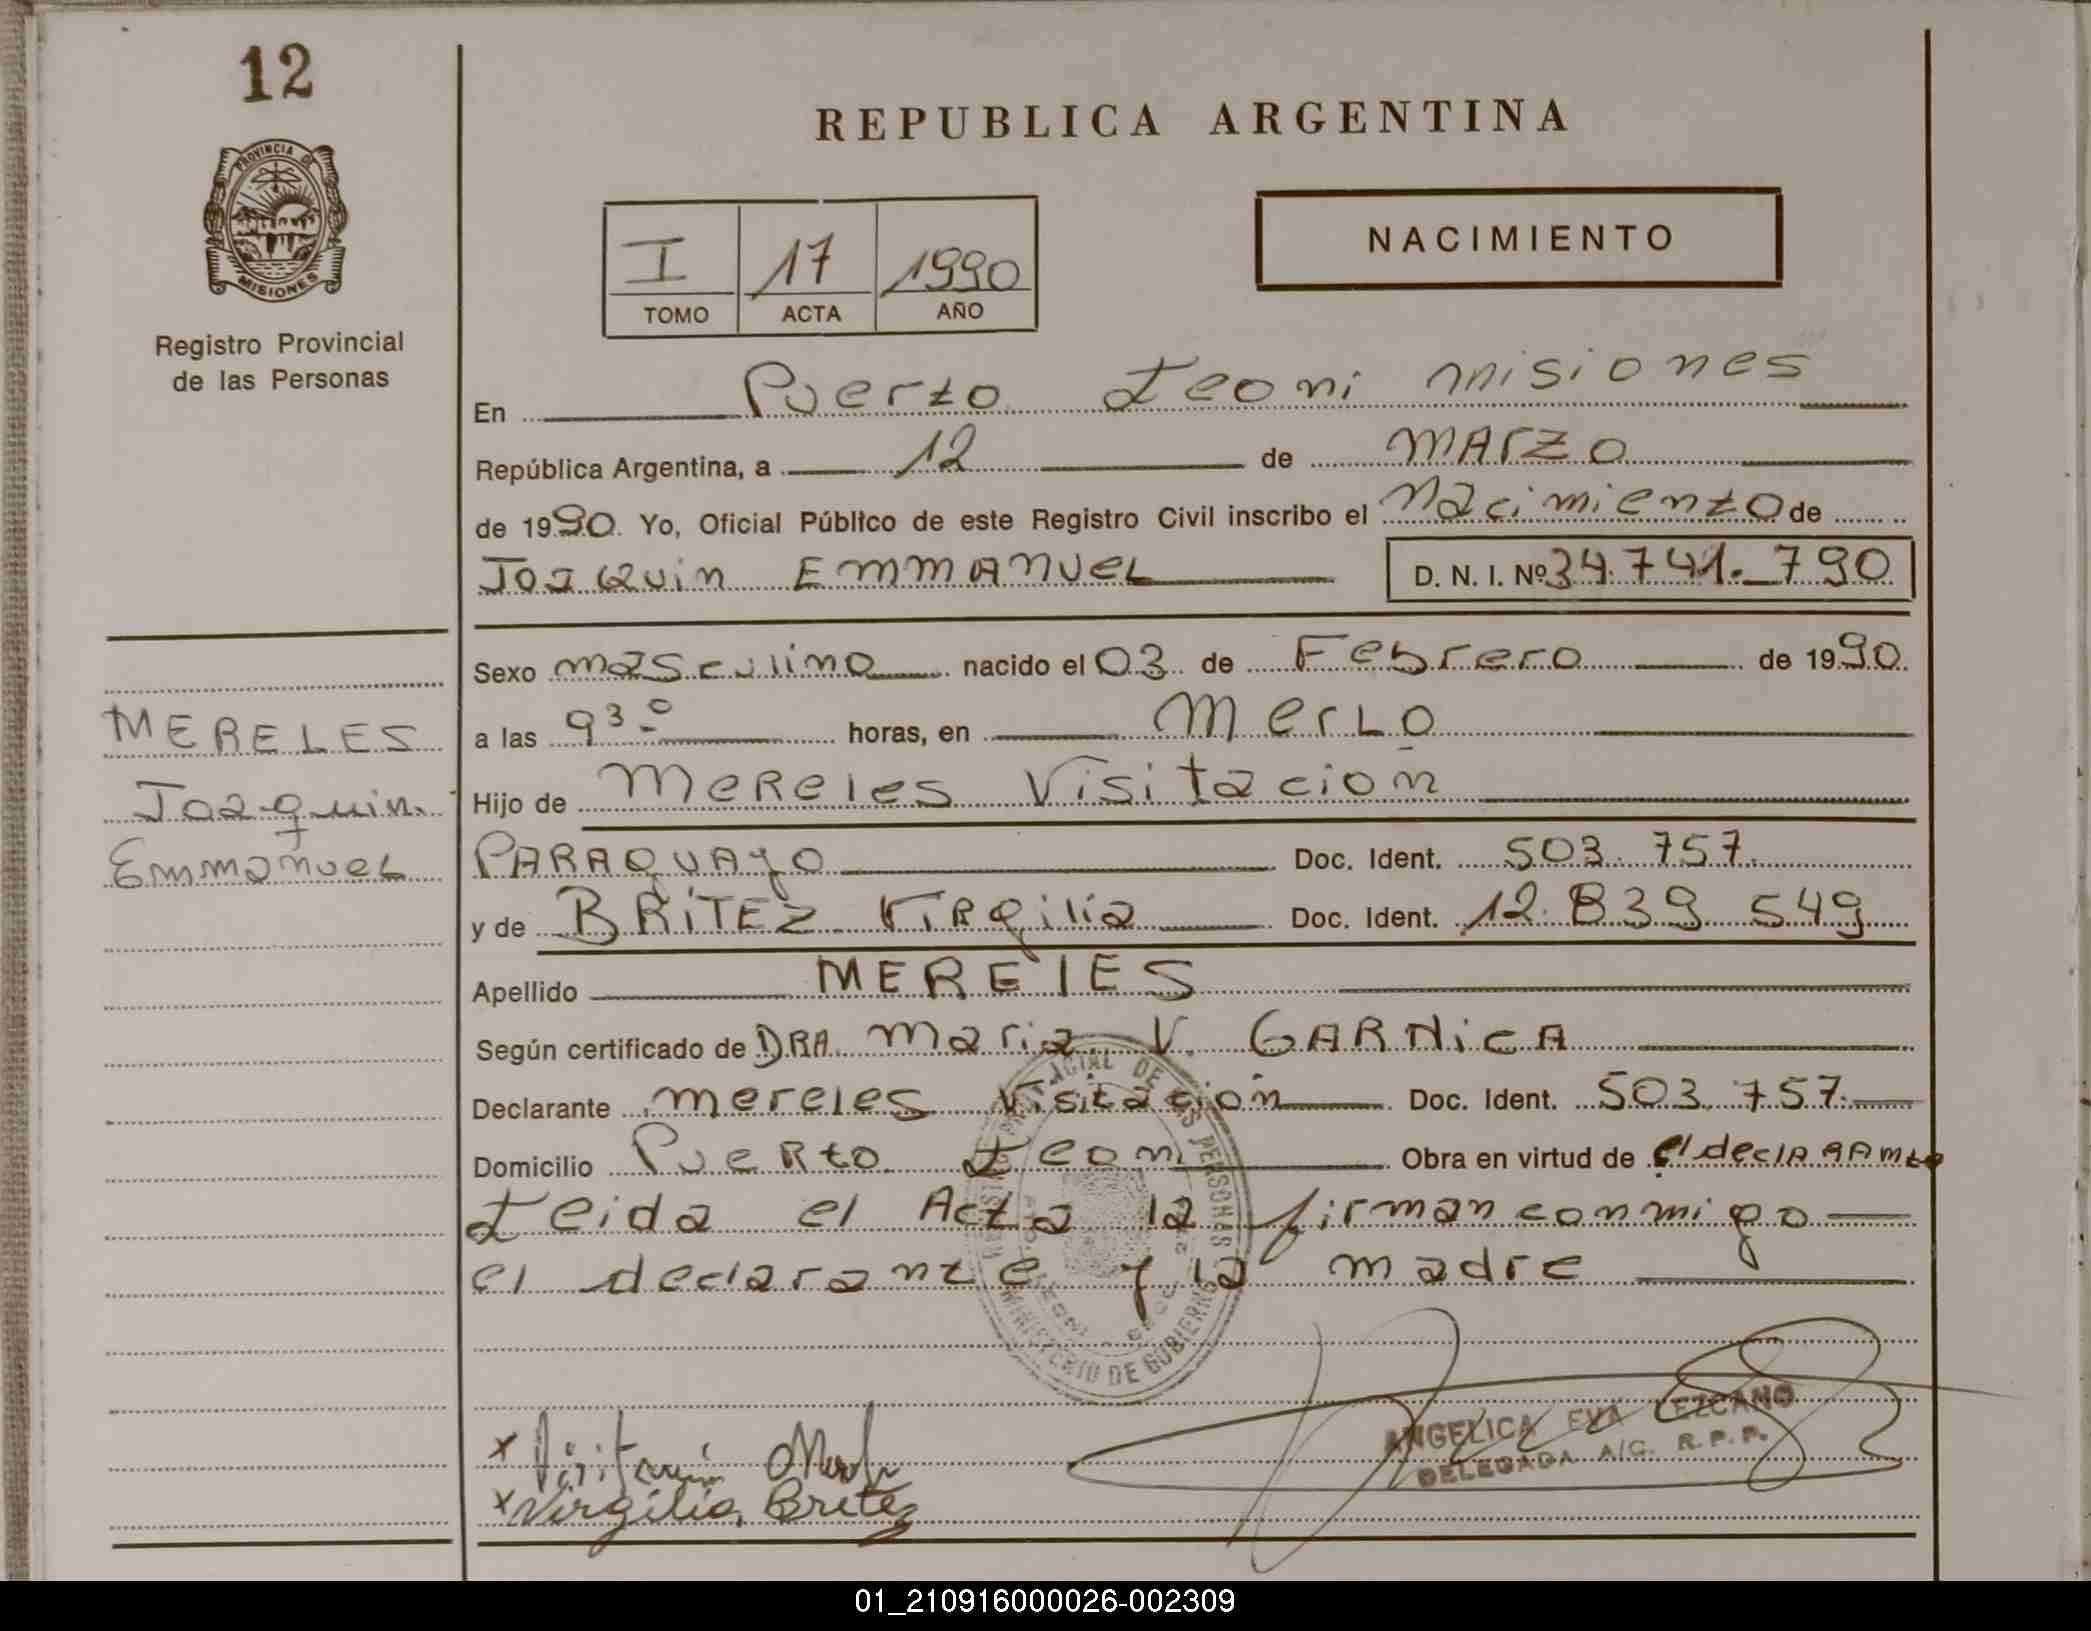 12
REPUBLICA ARGENTINA
PROVINCIA DE
MISIONES
NACIMIENTO
I 17 1990
TOMO ACTA AÑO
Registro Provincial
de las Personas
En Puerto Leoni misiones
República Argentina, a 12 de MARZO
de 1990. Yo, Oficial Público de este Registro Civil inscribo el Nacimiento de
Joaquin EMMANUEL D. N. I. Nº 34.741.790
Sexo masculino nacido el 03 de Febrero de 1990.
a las 9 30 horas, en Merlo
MERELES
Joaquin
Emmanuel
Hijo de Mereles Visitación
PARAguAyo Doc. Ident. 503.757.
y de BRITEZ Virgilia Doc. Ident. 12.839 549
Apellido MERElES
Según certificado de DRA Maria V. GARNiCA
Declarante mereles Visitación Doc. Ident. 503.757.
Domicilio Puerto Leoni Obra en virtud de el declaRAnte
Leida el Acta la firman conmigo
el declarante y la madre
DE LAS PERSONAS
MINISTERIO DE GOBIERNO
ANGELICA EVA LEZCANO
DELEGADA A/C. R.P.P.
x Visitación
x Virgilia Britez
01_210916000026-002309